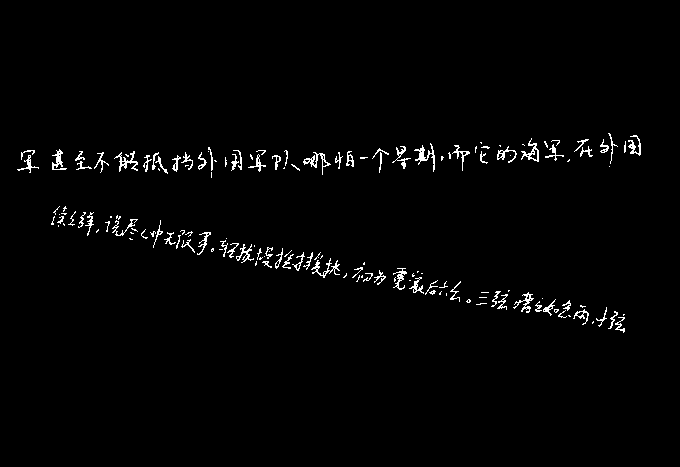 军甚至不能抵挡外国军队哪怕一个星期,而它的海军,在外国
续续弹,说尽心中无限事。轻拢慢捻抹复挑,初为霓裳后六幺。大弦嘈嘈如急雨,小弦